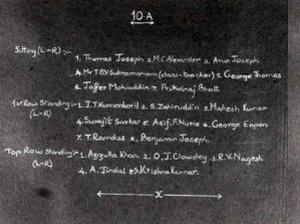 10-A
Sitting (L-R):- 1. Thomas Joseph 2. M.C Alexander 3. Arun Joseph
4. Mr T.B.V Subramaniam (class-teacher) 5. George Thomas
6. Jaffer Mohiuddin 7. Prithviraj Bhatt
1st Row Standing:- 1. J.T. 2. S. Zahiruddin 3. Mahesh Kumar
(L-R)
4. Surajit Sarkar 5. Asif. P. 6. George Eapen
7. T. Ramdas 8. Benjamin Joseph
Top Row Standing:- 1. Azizulla Khan 2. O.J. Clowsley 3. R.V. Nagesh
(L-R)
4. A. Jindal 5. S. Krishna Kumar.
x